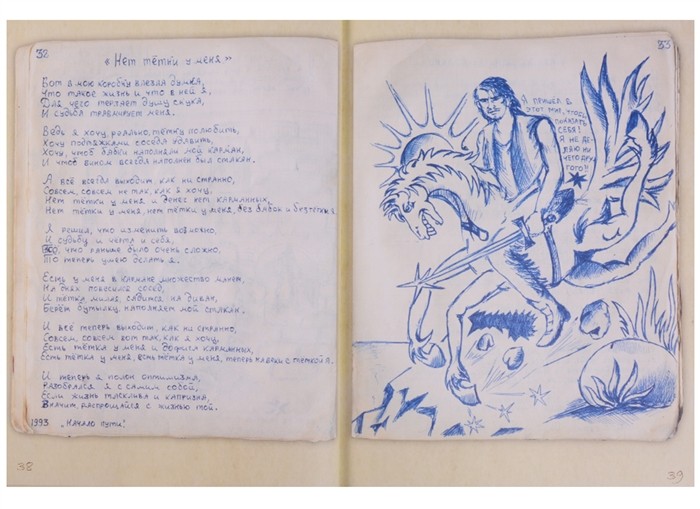 32
«Нет тётки у меня»
Вот в мою коробку влезла думка,
Что такое жизнь и что в ней я,
Для чего терзает душу скука,
И судьба травмирует меня.
Ведь я хочу, реально, тётку полюбить,
Хочу подтяжками соседа удавить,
Хочу, чтоб бабки наполняли мой карман,
И чтоб вином всегда наполнен был стакан.
А всё всегда выходит, как ни странно,
Совсем, совсем не так, как я хочу,
Нет тётки у меня и денег нет карманных,
Нет тётки у меня, нет тётки у меня, без бабок и без тётки я.
Я решил, что изменить возможно,
И судьбу и черта и себя,
что раньше было очень сложно,
То теперь умею делать я.
Есть у меня в кармане множество монет,
На днях повесился сосед,
И тётка, милая, садится на диван,
Берёт бутылку, наполняет мой стакан.
И всё теперь выходит, как ни странно,
Совсем, совсем вот так, как я хочу,
Есть тётка у меня и дофига карманных,
Есть тётка у меня, есть тётка у меня, теперь я с тёткой я.
И теперь я полон оптимизма,
Разобрался я с самим собой,
Если жизнь тосклива и капризна,
Значит, распрощайся с жизнью той.
1993 „Начало пути!
38
33
Я пришёл в
этот мир, чтобы
показать
себя!
Я не де-
лаю ни
чего дру
гого!!
39